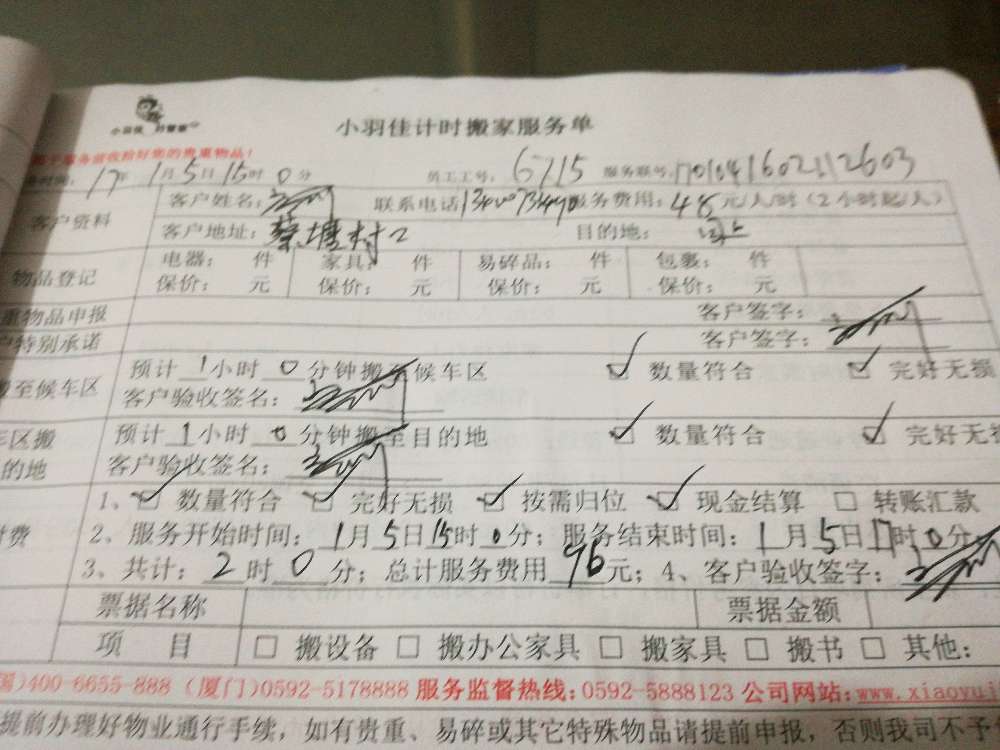 小羽佳计时搬家服务单
小羽佳
服务前收拾好您的贵重物品!
时间: 17年 1月5日15时0分 员工工号: 6715 服务联号:
客户资料 客户姓名: 联系电话 服务费用: 48元/人/时(2小时起/人)
客户地址: 蔡塘村口 目的地:
物品登记 电器: 件 家具: 件 易碎品: 件 包裹: 件
保价: 元 保价: 元 保价: 元 保价: 元
重物品申报 客户签字:
户特别承诺 客户签字:
搬至候车区 预计1小时0分钟搬至候车区 ☑ 数量符合 ☑ 完好无损
客户验收签名:
车区搬 预计1小时0分钟搬至目的地 ☑ 数量符合 ☑ 完好无损
的地 客户验收签名:
1、☑ 数量符合 ☑ 完好无损 ☑ 按需归位 ☑ 现金结算 □ 转账汇款
付费 2、服务开始时间: 1月5日15时0分; 服务结束时间: 1月5日17时0分
3、共计: 2时0分; 总计服务费用96元; 4、客户验收签字:
票据名称 票据金额
项 目 □ 搬设备 □ 搬办公家具 □ 搬家具 □ 搬书 □ 其他:
国)400-6655-888 (厦门)0592-5178888 服务监督热线:0592-5888123 公司网站:www.xiaoyuj
提前办理好物业通行手续, 如有贵重、易碎或其它特殊物品请提前申报, 否则我司不予